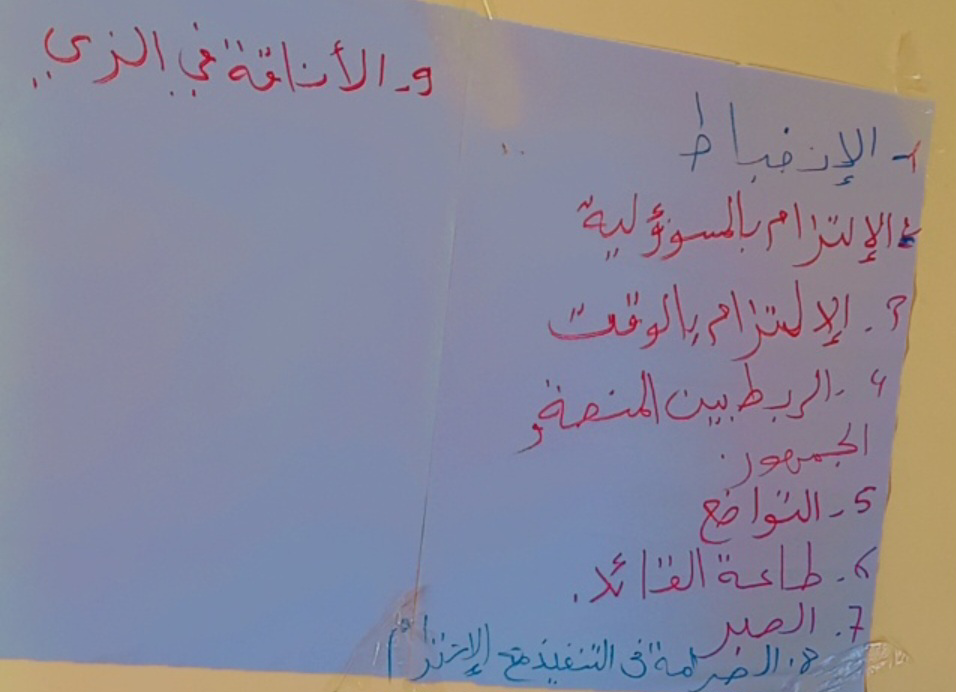 1- الإنضباط
2- الإلتزام بالمسوؤلية
3. الإلتزام بالوقت
4 - الربط بين المنصة و
الجمهور.
5- التواضع
6. طاعة القائد.
7. الصبر
8. الصرامة في التنفيذ مع الإلتزام
9- الأناقة في الزي